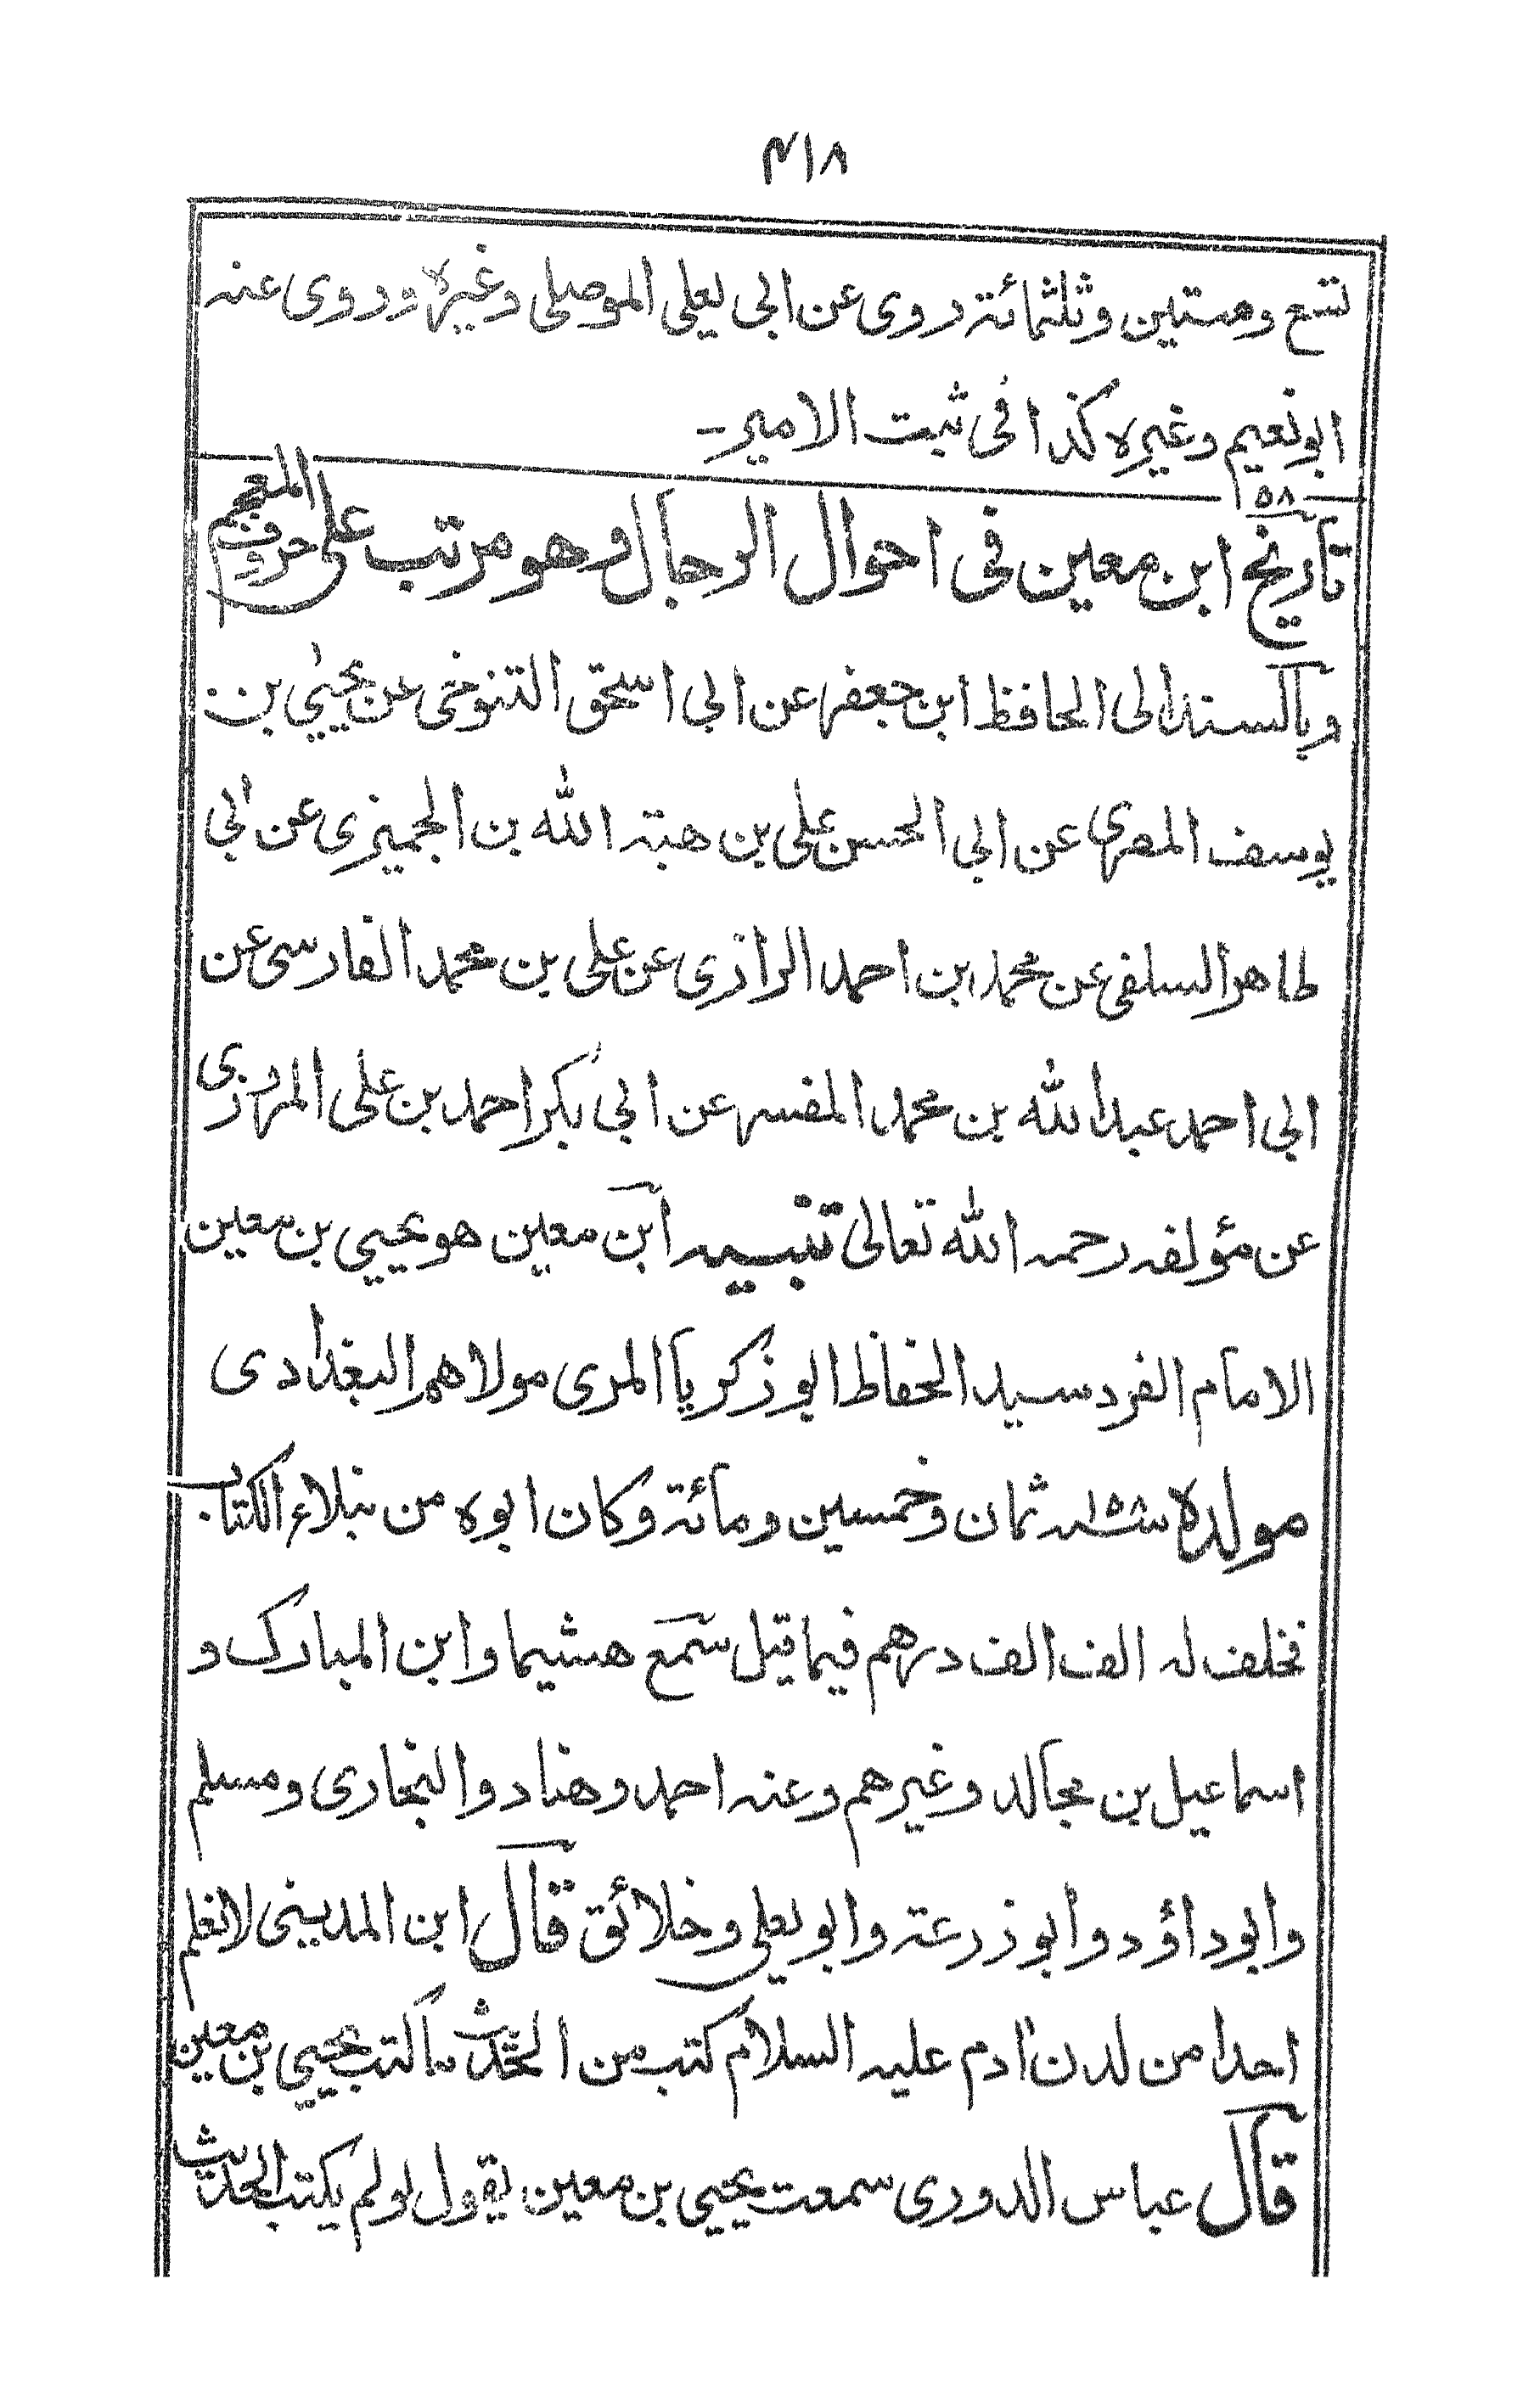 ٤١٨
تسع وستين وثلثمائة روى عن ابى يعلى الموصلى وغيره وروى عنه
ابونعيم وغيره كذا فى ثبت الامير ـ
٥٨
تاريخ ابن معين فى احوال الرجال وهو مرتب على حروف المعجم
وبالسند الى الحافظ ابن جعفر عن ابى اسحق التنوخى عن يحيى بن
يوسف المصرى عن ابى الحسن على بن هبة الله بن الجميزى عن ابى
طاهر السلفى عن محمد ابن احمد الرازى عن على بن محمد الفارسى عن
ابى احمد عبدالله بن محمد المفسر عن ابى بكر احمد بن على المروزى
عن مؤلفه رحمه الله تعالى تنبيه ابن معين هو يحيى بن معين
الامام الفرد سيد الحفاظ ابو زكريا المرى مولاهم البغدادى
مولده ١٥٨ سنه ثمان وخمسين ومائة وكان ابوه من نبلاء الكتاب
فخلف له الف الف درهم فيما قيل سمع هشيما وابن المبارك و
اسماعيل بن مجالد وغيرهم وعنه احمد وهناد والبخارى ومسلم
وابوداؤد وابو زرعة وابو يعلى وخلائق قال ابن المدينى لا نعلم
احدا من لدن آدم عليه السلام كتب من الحديث ما كتب يحيى بن معين
قال عباس الدورى سمعت يحيى بن معين يقول لو لم يكتب الحديث